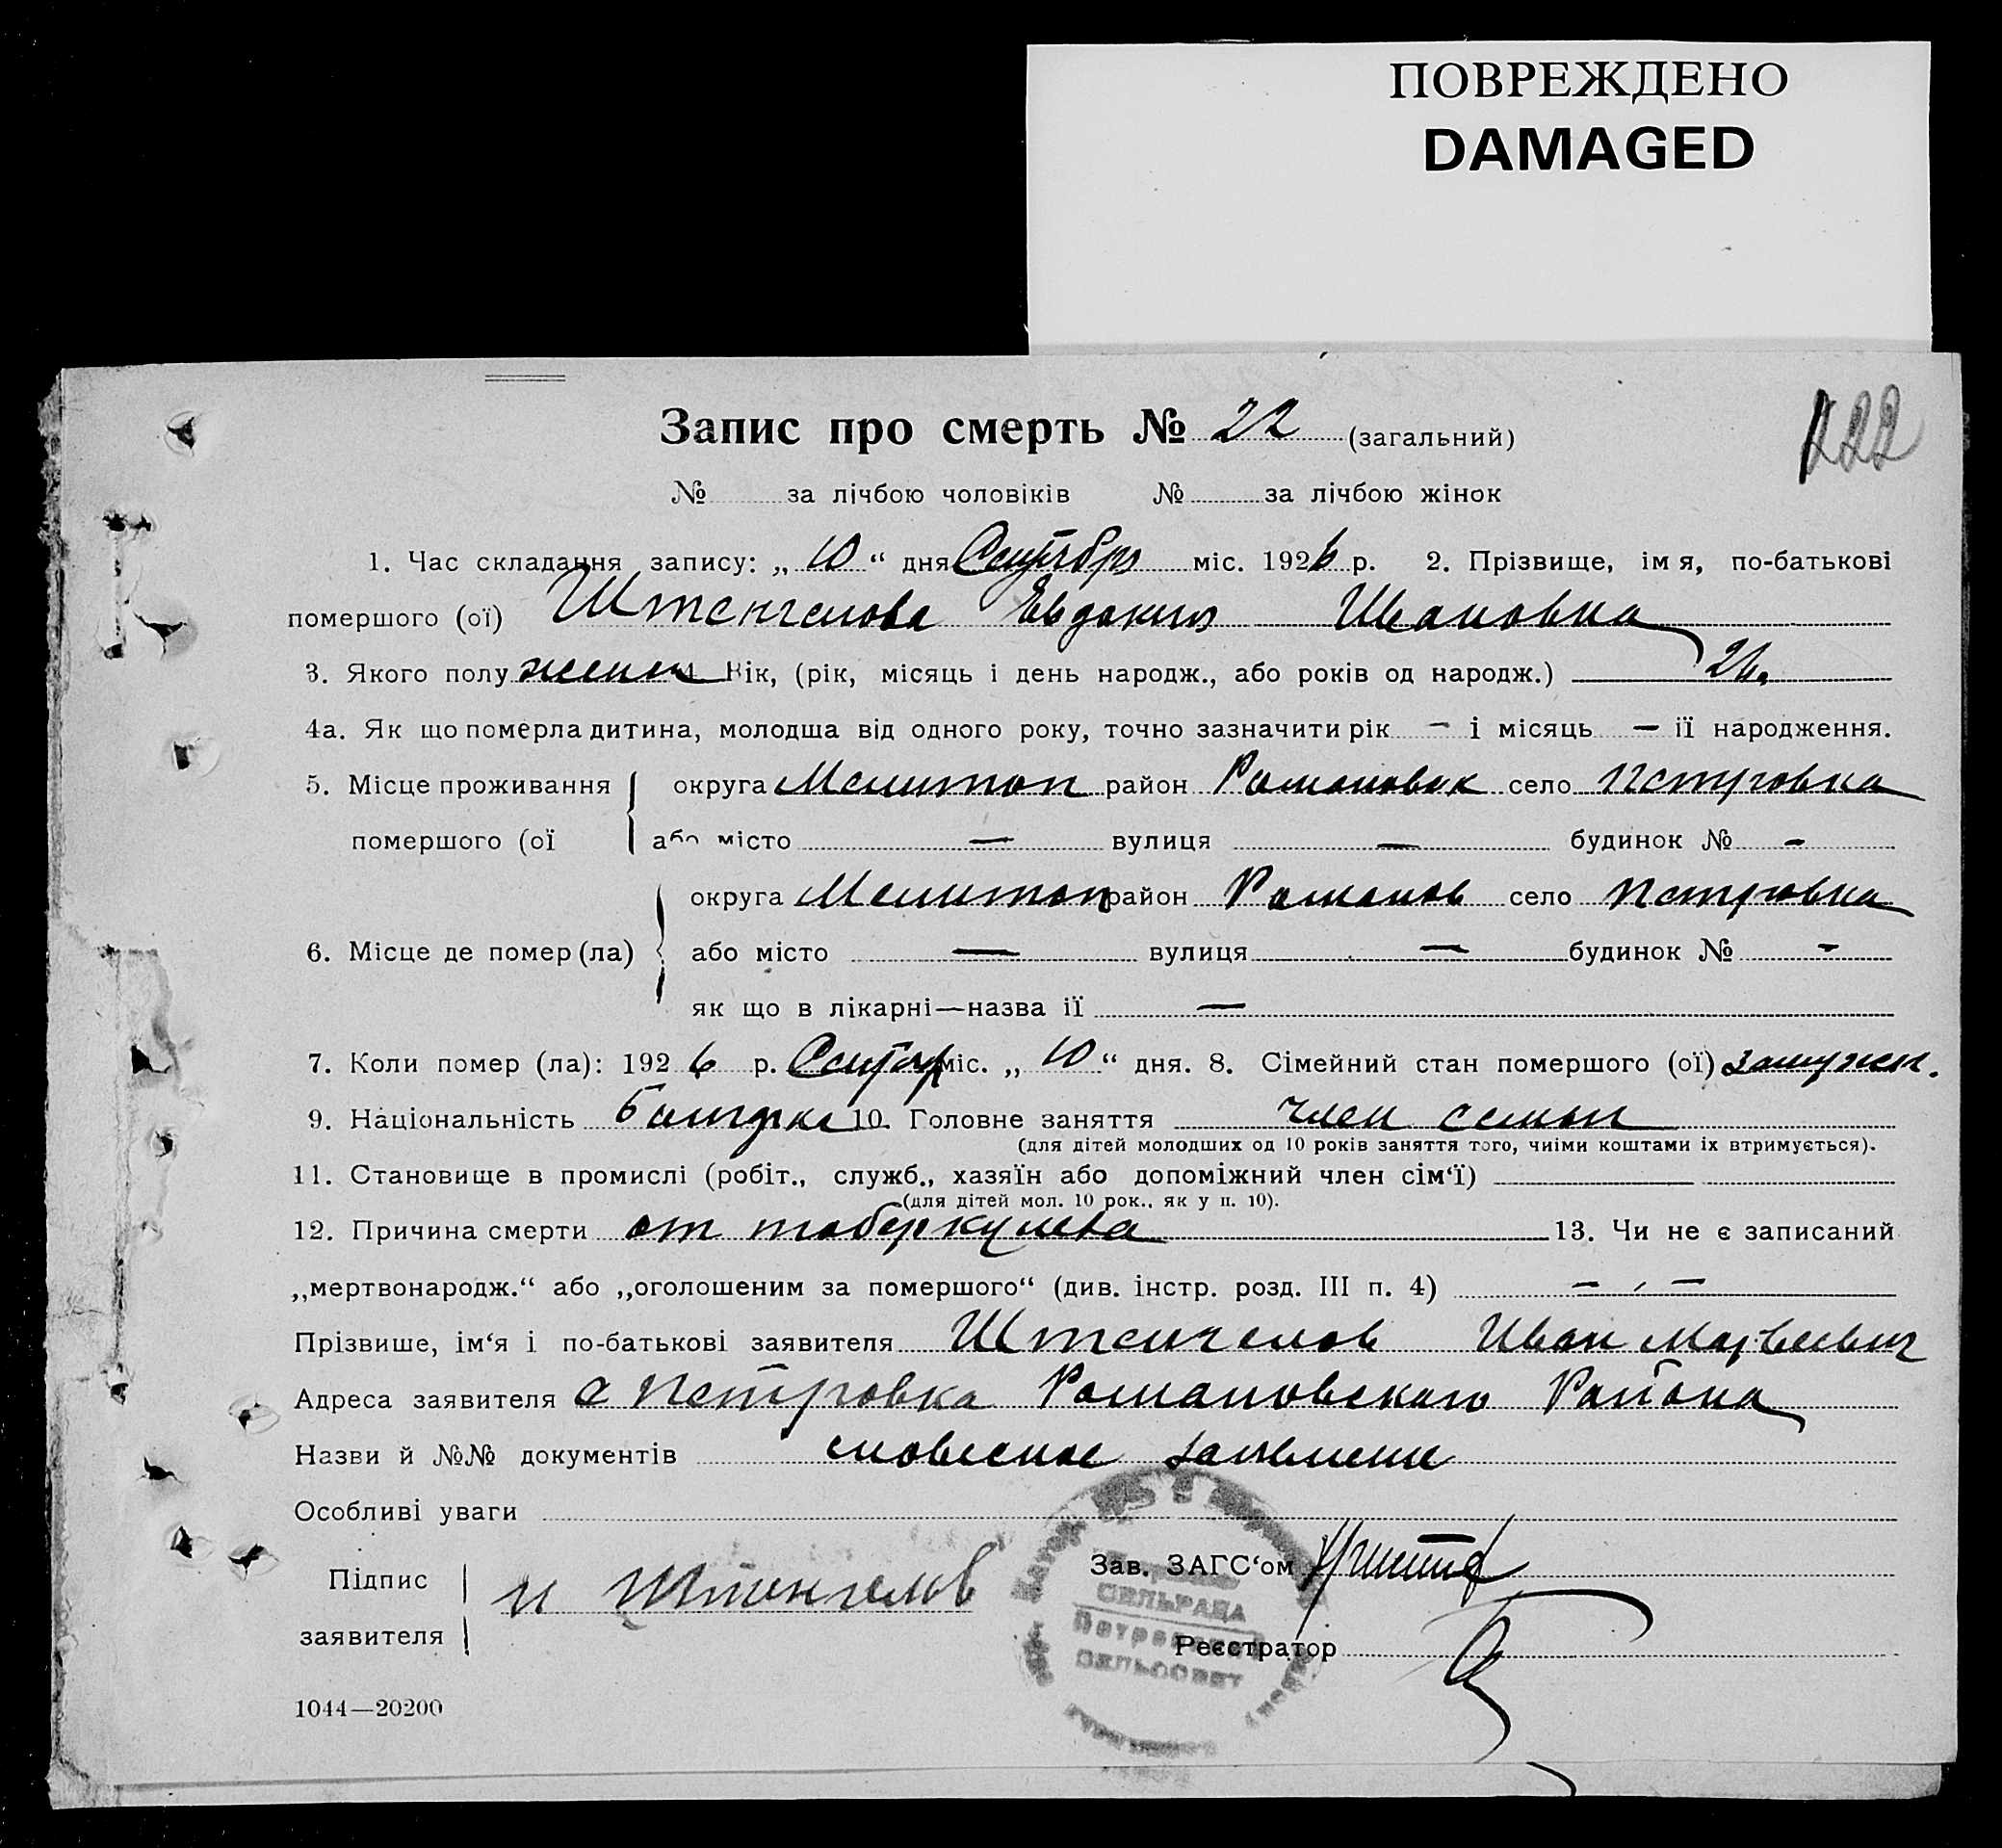 ПОВРЕЖДЕНО
DAMAGED
Запис про смерть № 22 (загальний)
222
№ за лічбою чоловіків № за лічбою жінок
1. Час складання запису: „ 10 “ дня Сентября міс. 1926 р. 2. Прізвище, імя, по-батькові
помершого (ої) Штенгелова Евдокия Ивановна
3. Якого полу женск 4. Вік, (рік, місяць і день народж., або років од народж.)
4а. Як що померла дитина, молодша від одного року, точно зазначити рік – і місяць – ії народження.
5. Місце проживання округа Мелитоп район Романовск село Петровка
помершого (ої або місто — вулиця — будинок № -
округа Мелитоп район Романов село Петровка
6. Місце де помер (ла) або місто — вулиця — будинок № -
як що в лікарні—назва ії —
7. Коли помер (ла): 1926 р. Сентяб міс. „ 10 “ дня. 8. Сімейний стан помершого (ої) замужн.
9. Національність Болгарка 10. Головне заняття член семьи
(для дітей молодших од 10 років заняття того, чиіми коштами іх втримується).
11. Становище в промислі (робіт., служб., хазяїн або допоміжний член сім‘ї)
(для дітей мол. 10 рок., як у п. 10).
12. Причина смерти от тоберкулеза 13. Чи не є записаний
„мертвонародж.“ або „оголошеним за помершого“ (див. інстр. розд. III п. 4) – , –
Прізвише, ім‘я і по-батькові заявителя Штенгелов Иван Матвеевич
Адреса заявителя с Петровка Романовского Района
Назви й №№ документів словесное заявление
Особливі уваги
Підпис
заявителя
и Штенгелов
Зав. ЗАГС‘ом
СЕЛЬРАДА
СЕЛЬСОВЕТ
Реєстратор
1044—20200